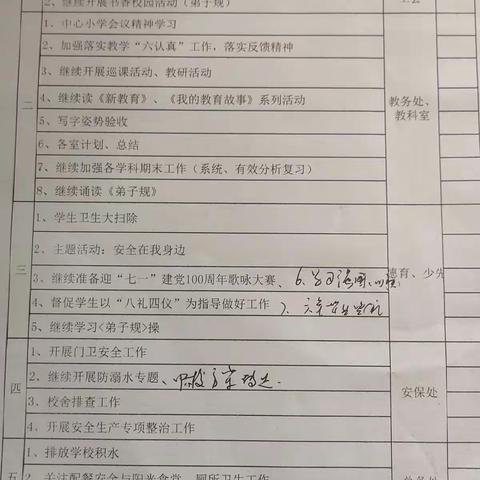 2、继续开展书香校园活动（弟子规）
二
1、中心小学会议精神学习
2、加强落实教学“六认真”工作，落实反馈精神
3、继续开展巡课活动、教研活动
4、继续读《新教育》、《我的教育故事》系列活动
5、写字姿势验收
6、各室计划、总结
7、继续加强各学科期末工作（系统、有效分析复习）
8、继续诵读《弟子规》
教务处、
教科室
三
1、学生卫生大扫除
2、主题活动：安全在我身边
3、继续准备迎“七一”建党100周年歌咏大赛、6.
4、督促学生以“八礼四仪”为指导做好工作 7.
5、继续学习<弟子规>操
德育、少先
四
1、开展门卫安全工作
2、继续开展防溺水专题、
3、校舍排查工作
4、开展安全生产专项整治工作
安保处
五
1、排放学校积水
2、关注配餐安全与阳光食堂、厕所卫生工作